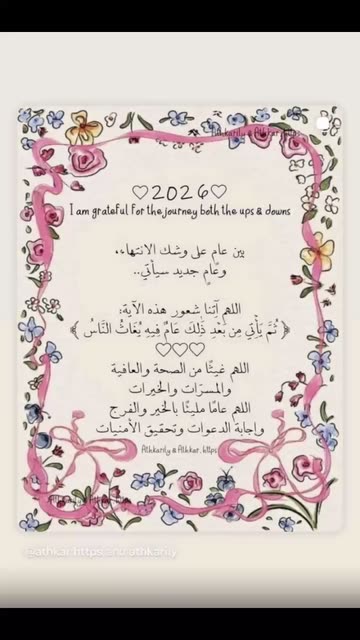 Athkarily & Athkar.https
♡2026♡
I am grateful for the journey both the ups & downs
بين عامٍ على وشك الانتهاء،،
وعامٍ جديد سيأتي..
اللهم آتِنا شعور هذه الآية:
﴿ ثُمَّ يَأْتِي مِن بَعْدِ ذَٰلِكَ عَامٌ فِيهِ يُغَاثُ النَّاسُ ﴾
♡♡♡
اللهم غيثًا من الصحة والعافية
والمسرّات والخيرات
اللهم عامًا مليئًا بالخير والفرج
وإجابة الدعوات وتحقيق الأمنيات
Athkarily & Athkar.https
@athkar.https and athkarily